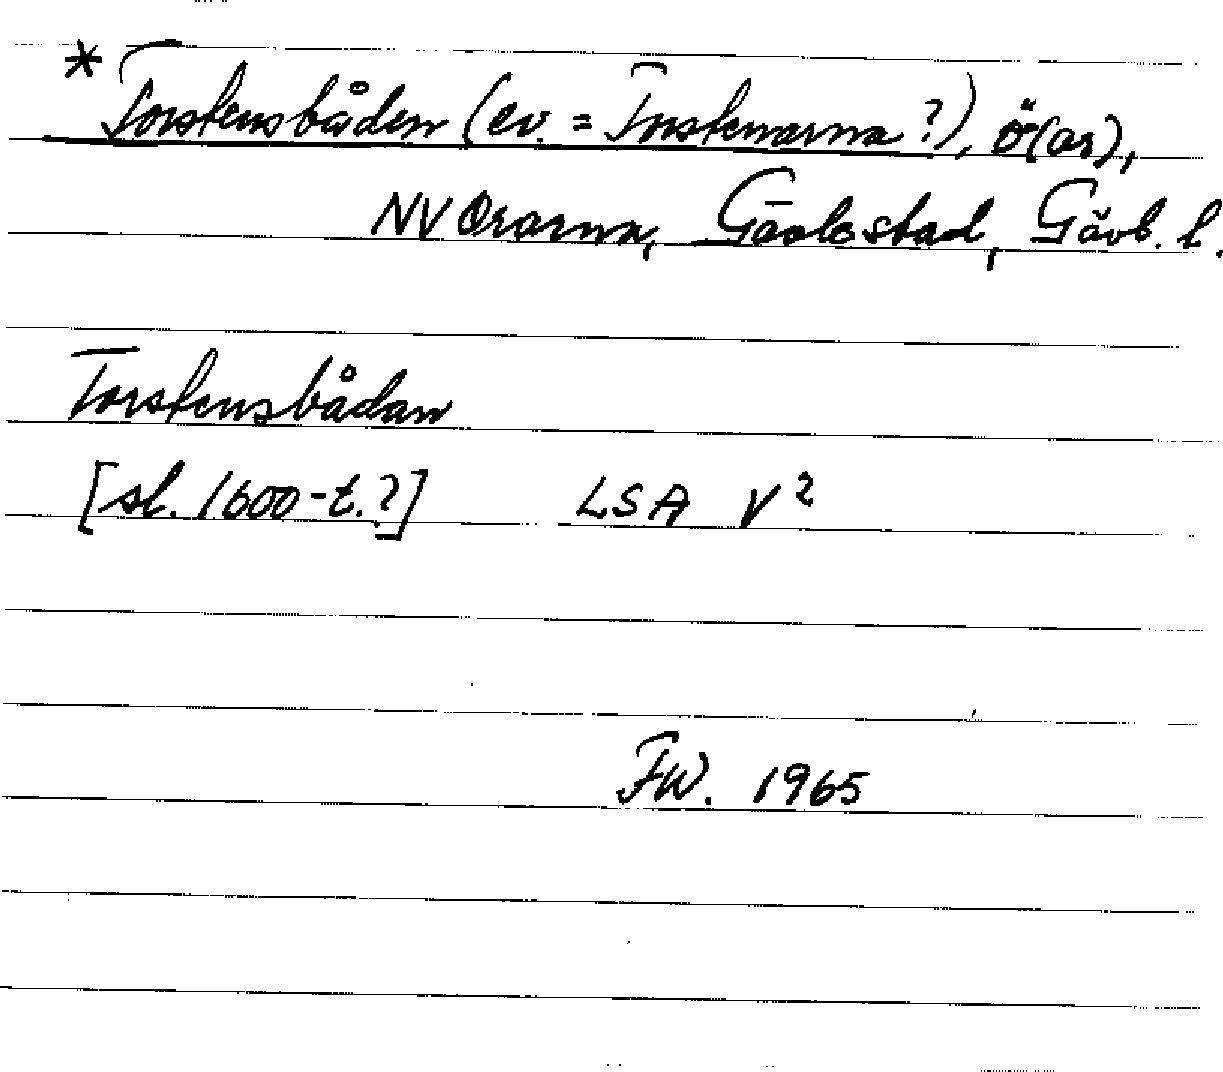 * Torstensbåden (ev. = Torstenarna?), ö(ar),
NV Orarna, Gävle stad, Gävb. l.
Torstensbådan
[sl. 1600-t.?] LSA V²
FW. 1965